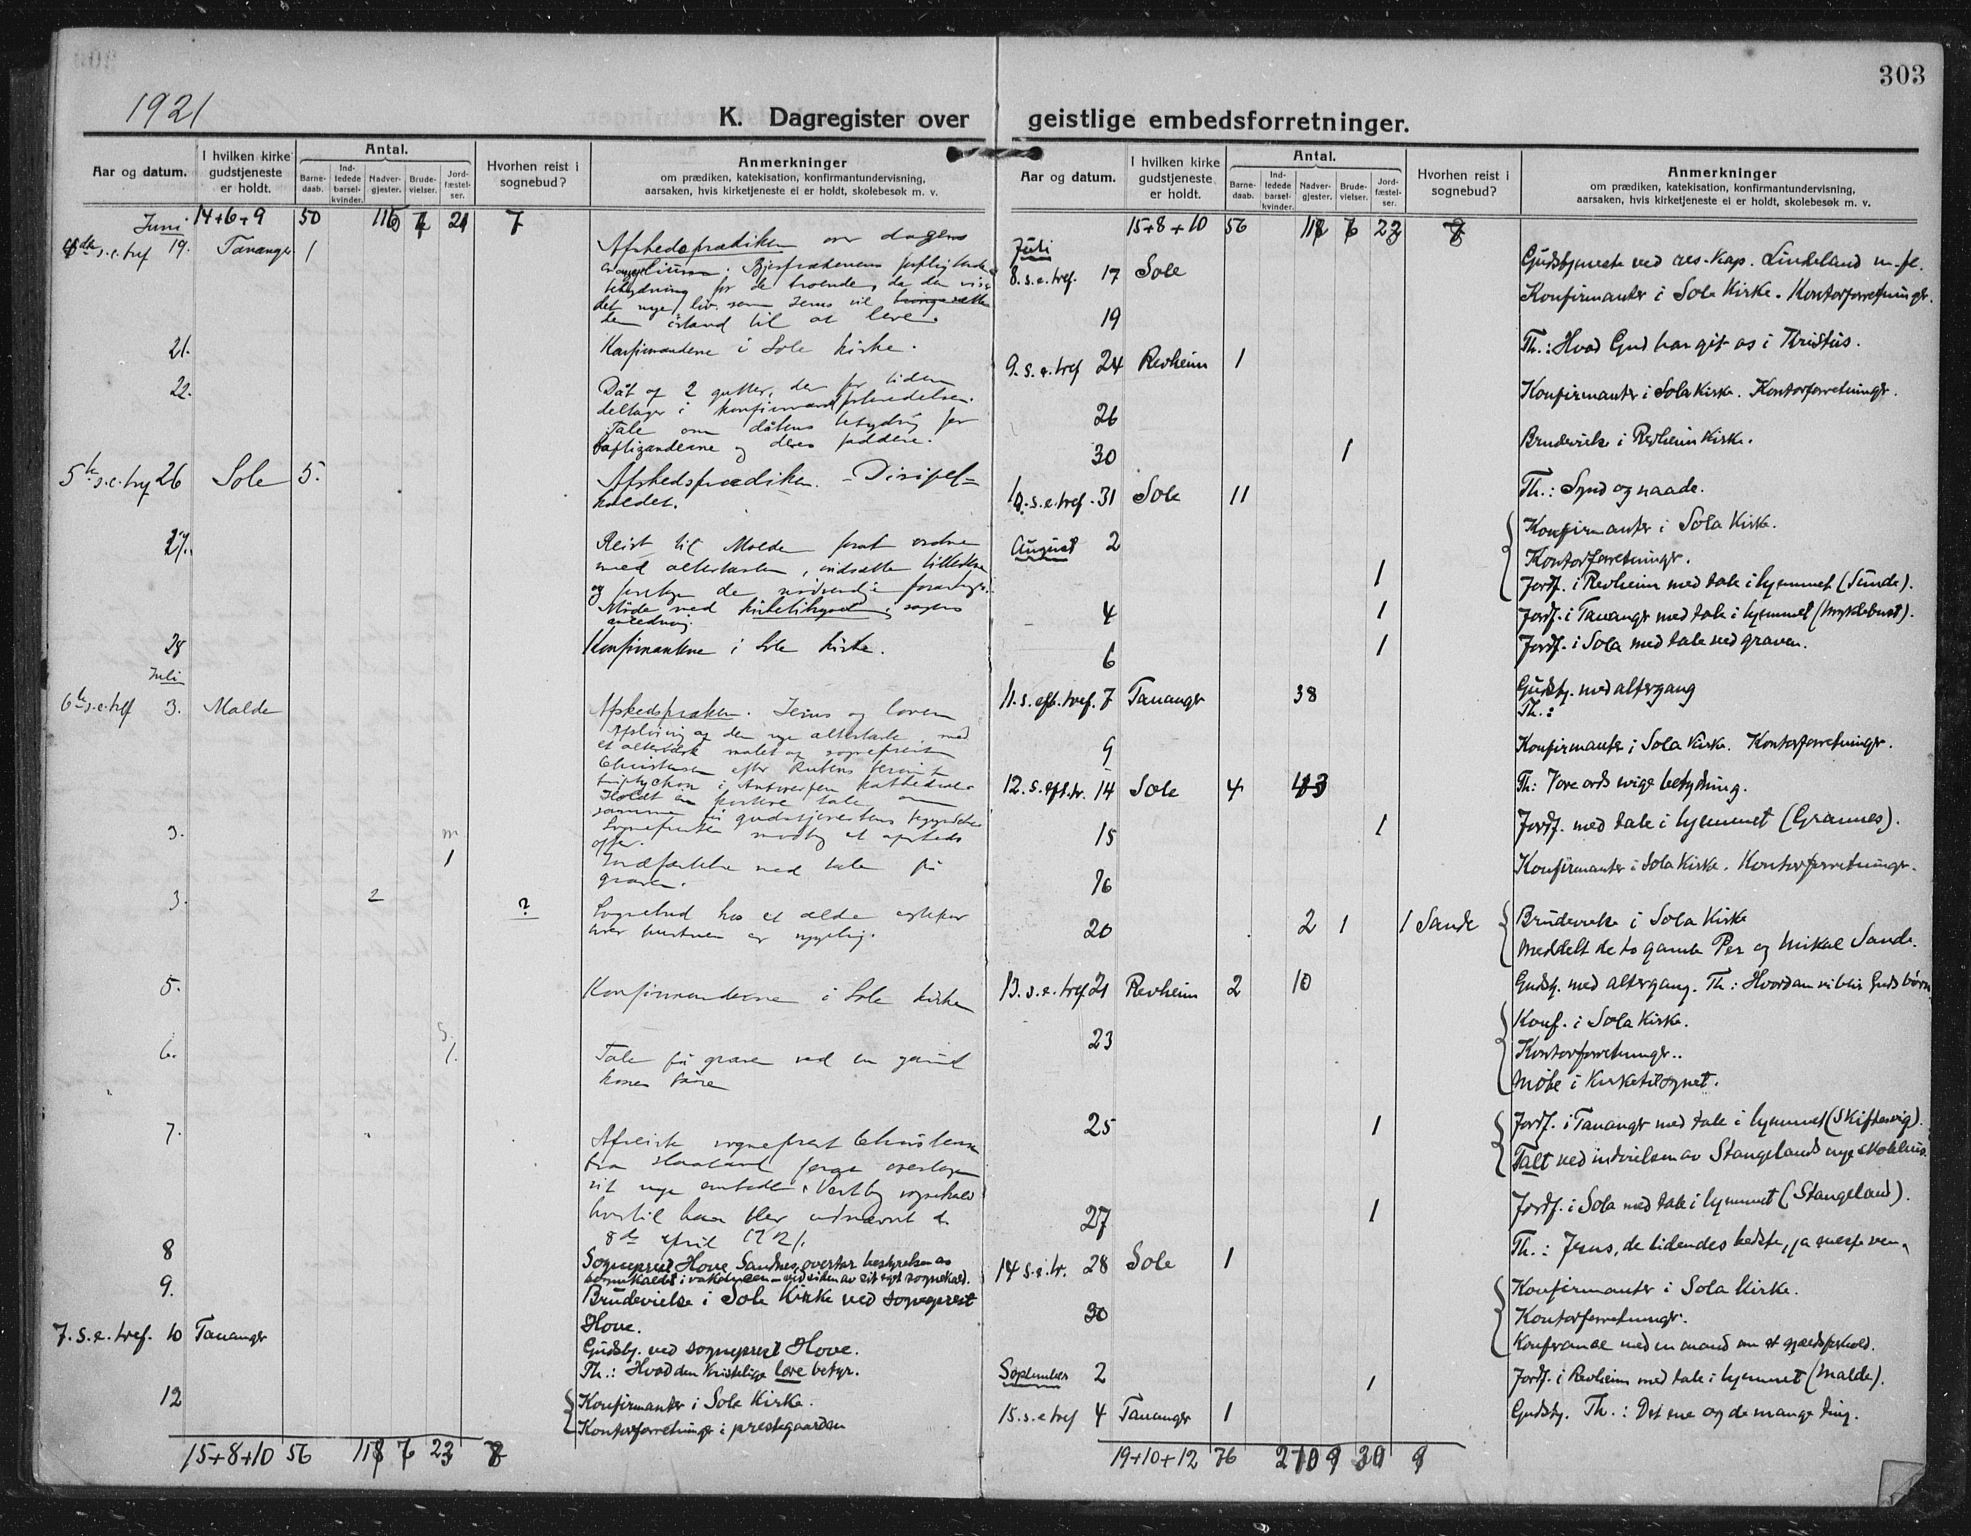 303
1921
K. Dagregister over geistlige embedsforretninger.
Aar og datum.
I hvilken kirke gudstjeneste er holdt.
Antal.
Barne-daab.
Ind-ledede barsel-kvinder.
Nadver-gjester.
Brude-vielser.
Jord-fæstel-ser.
Hvorhen reist i sognebud?
Anmerkninger
om prædiken, katekisation, konfirmantundervisning,
aarsaken, hvis kirketjeneste ei er holdt, skolebesøk m. v.
Juni 14+6+9 50 21 7
s.e.tref 19. Tananger 1 Afskedsprædiken over dagens
det nye liv som Jesus vil
dem istand til at leve.
21. Konfirmanderne i Sole kirke.
22. Dåb af 2 gutter, der for tiden
deltager i
Tale om dåbens betydning for
og deres faddere.
5te s.e.tref 26 Sole 5. Afskedsprædiken. - Discipel-
kaldet.
27. Reist til Malde forat ordne
med altertavlen, indsætte
og foretage de nødvendige
Møde med kirketilsynet i
28 Konfirmanterne i Sole kirke.
Juli
6te s.e.tref 3. Malde Afskedspræken. Jesus og loven
Afsløring og den nye altertavle med
et alterværk malet og sogneprest
Christensen efter Rubens
triptychon i Antwerpen
Holdt en kortere tale om
samme før gudstjenestens begyndelse
Sognepresten modtog et afskeds
offer.
3. m 1 Jordfæstelse med tale på
graven.
3. 2 ? Sognebud hos et ældre ektepar
hvor hustruen er sygelig.
5. Konfirmanderne i Sole kirke
6. 1. Tale på graven ved en gammel
kones båre
7. Afreiste sogneprest Christensen
fra Haaland for at overtage
sit nye embede i Vestby sognekald
hvortil han blev utnævnt de
8de april 1921.
8 Sogneprest Hove, Sandnes, overtar bestyrelsen av
sognekaldet i vakancen - ved siden av sit eget sognekald.
9. Brudevielse i Sole Kirke ved sogneprest
Hove.
7. s. e. tref. 10 Tananger Gudstj. ved sogneprest Hove.
Th.: Hvad den kristelige love betyr.
12 Konfirmanter i Sole Kirke.
Kontorforretninger i prestegaarden
15+8+10 56 118 7 23 8
Aar og datum.
I hvilken kirke gudstjeneste er holdt.
Antal.
Barne-daab.
Ind-ledede barsel-kvinder.
Nadver-gjester.
Brude-vielser.
Jord-fæstel-ser.
Hvorhen reist i sognebud?
Anmerkninger
om prædiken, katekisation, konfirmantundervisning,
aarsaken, hvis kirketjeneste ei er holdt, skolebesøk m. v.
15+8+10 56 118 23 8
Juli
8. s.e.tref. 17 Sole Gudstjeneste ved res. kap. Lindeland m. fl.
19 Konfirmanter i Sola Kirke. Kontorforretninger.
9. s. e. tref 24 Revheim 1 Th.: Hvad Gud har git os i Kristus.
26 Konfirmanter i Sola Kirke. Kontorforretninger.
30 1 Brudevielse i Revheim Kirke.
10. s.e.tref. 31 Sole 11 Th.: Synd og naade.
August 2 Konfirmanter i Sola Kirke.
Kontorforretninger.
1 Jordf. i Revheim med tale i hjemmet (Sunde).
4 1 Jordf. i Tananger med tale i hjemmet (Myklebust).
6 1 Jordf. i Sola med tale ved graven.
11. s. eft. tref. 7 Tananger 38 Gudstj. med altergang
Th.:
9 Konfirmanter i Sola Kirke. Kontorforretninger.
12. s. eft. tr. 14 Sole 4 43 Th: Vore ords evige betydning.
15 1 Jordf. med tale i hjemmet (Grannes).
16 Konfirmanter i Sola Kirke. Kontorforretninger.
20 2 1 1 Sande Brudevielse i Sola Kirke
Meddelt de to gamle Per og Mikal Sande.
13. s. e. tref 21 Revheim 2 10 Gudstj. med altergang. Th.: Hvordan vi blir Guds børn
23 Konf. i Sola Kirke.
Kontorforretninger.
Møte i Kirketilsynet.
25 1 Jordf. i Tananger med tale i hjemmet (Skiftesvig).
Talt ved indvielsen av Stangelands nye skolehus.
27 1 Jordf. i Sola med tale i hjemmet (Stangeland).
14 s. e. tr. 28 Sole 1 Th.: Jesus, de lidendes bedste, ja eneste ven.
30 Konfirmanter i Sola Kirke.
Kontorforretninger.
Konferanse med en mand om et gjældsforhold.
September 2 1 Jordf. i Revheim med tale i hjemmet (Malde).
15. s. e tref 4 Tananger 1 Gudstj. Th.: Det ene og de mange ting.
19+10+12 76 210 9 30 9